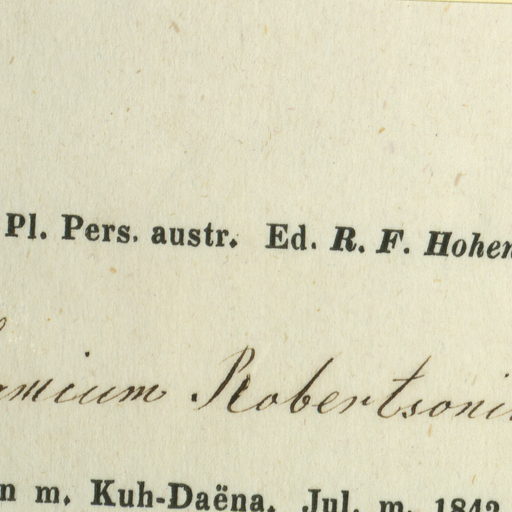 Pl. Pers. austr. Ed. R. F. Hohen
amium Robertsoni
n m. Kuh-Daëna. Jul. m. 1842